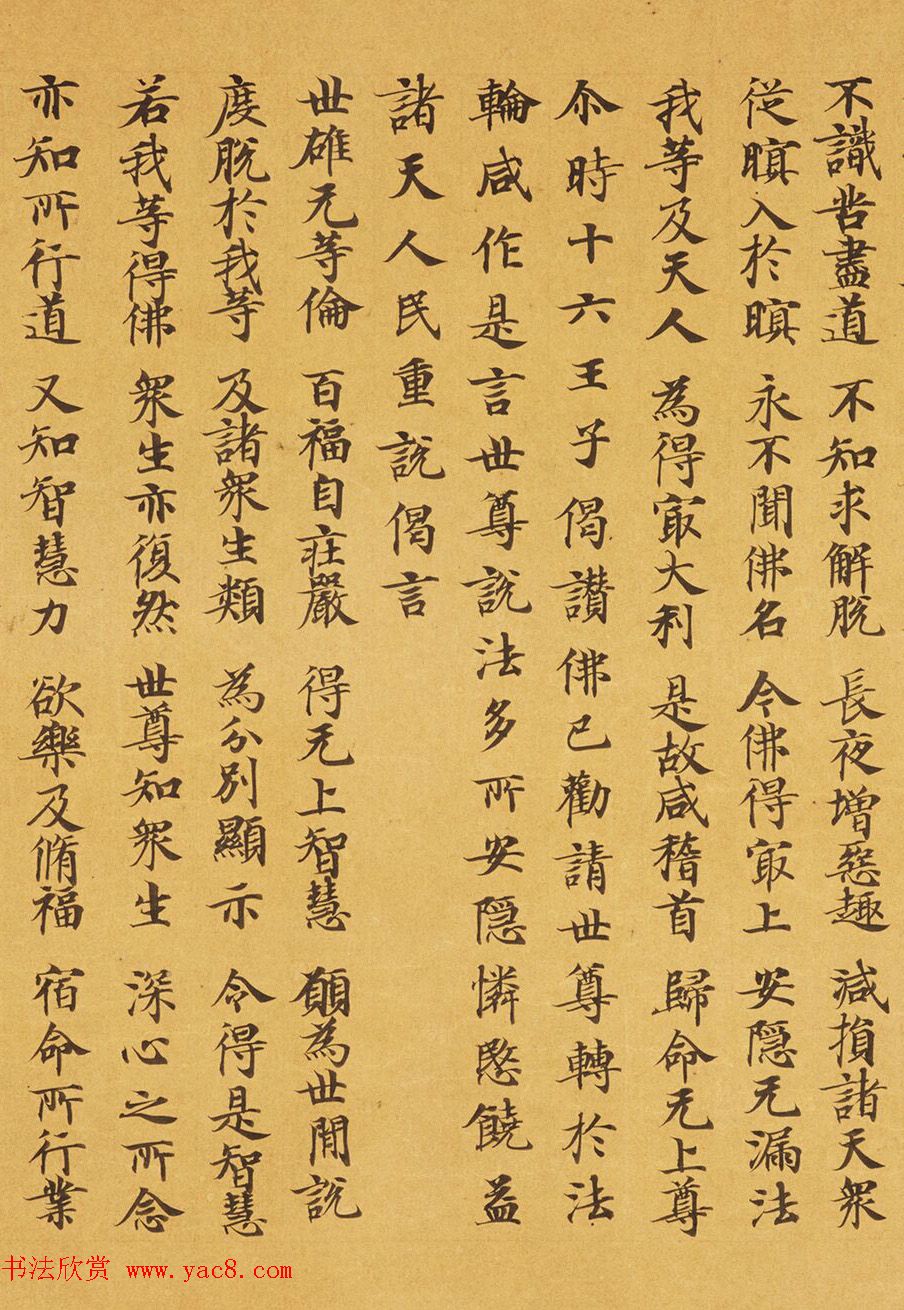 不識苦盡道 不知求解脫 長夜增惡趣 減損諸天衆
從瞑入於瞑 永不聞佛名 今佛得㝡上 安隱无漏法
我等及天人 為得㝡大利 是故咸稽首 歸命无上尊
尒時十六王子偈讃佛已勸請世尊轉於法
輪咸作是言世尊說法多所安隱憐愍饒益
諸天人民重說偈言
世雄无等倫 百福自莊嚴 得无上智慧 願為世閒說
度脫於我等 及諸衆生類 為分別顯示 令得是智慧
若我等得佛 衆生亦復然 世尊知衆生 深心之所念
亦知所行道 又知智慧力 欲樂及脩福 宿命所行業
书法欣赏 www.yac8.com